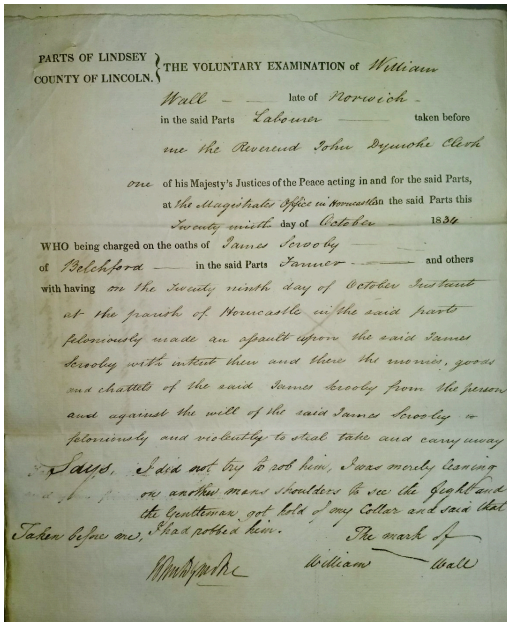 PARTS OF LINDSEY
COUNTY OF LINCOLN.
THE VOLUNTARY EXAMINATION of William
Wall late of Norwich
in the said Parts Labourer taken before
me the Reverend John Dymoke Clerk
one of his Majesty's Justices of the Peace acting in and for the said Parts,
at the Magistrates Office in Horncastle in the said Parts this
Twenty ninth day of October 1834
WHO being charged on the oaths of James Scrooby
of Belchford in the said Parts Farmer and others
with having on the Twenty ninth day of October Instant
at the parish of Horncastle in the said parts
feloniously made an assault upon the said James
Scrooby with intent then and there the monies, goods
and chattels of the said James Scrooby from the person
and against the will of the said James Scrooby
feloniously and violently to steal take and carry away
Says, I did not try to rob him, I was merely leaning
on another mans shoulders to see the fight and
the Gentleman got hold of my Collar and said that
I had robbed him.
Taken before me,
John Dymoke
The mark of
William Wall